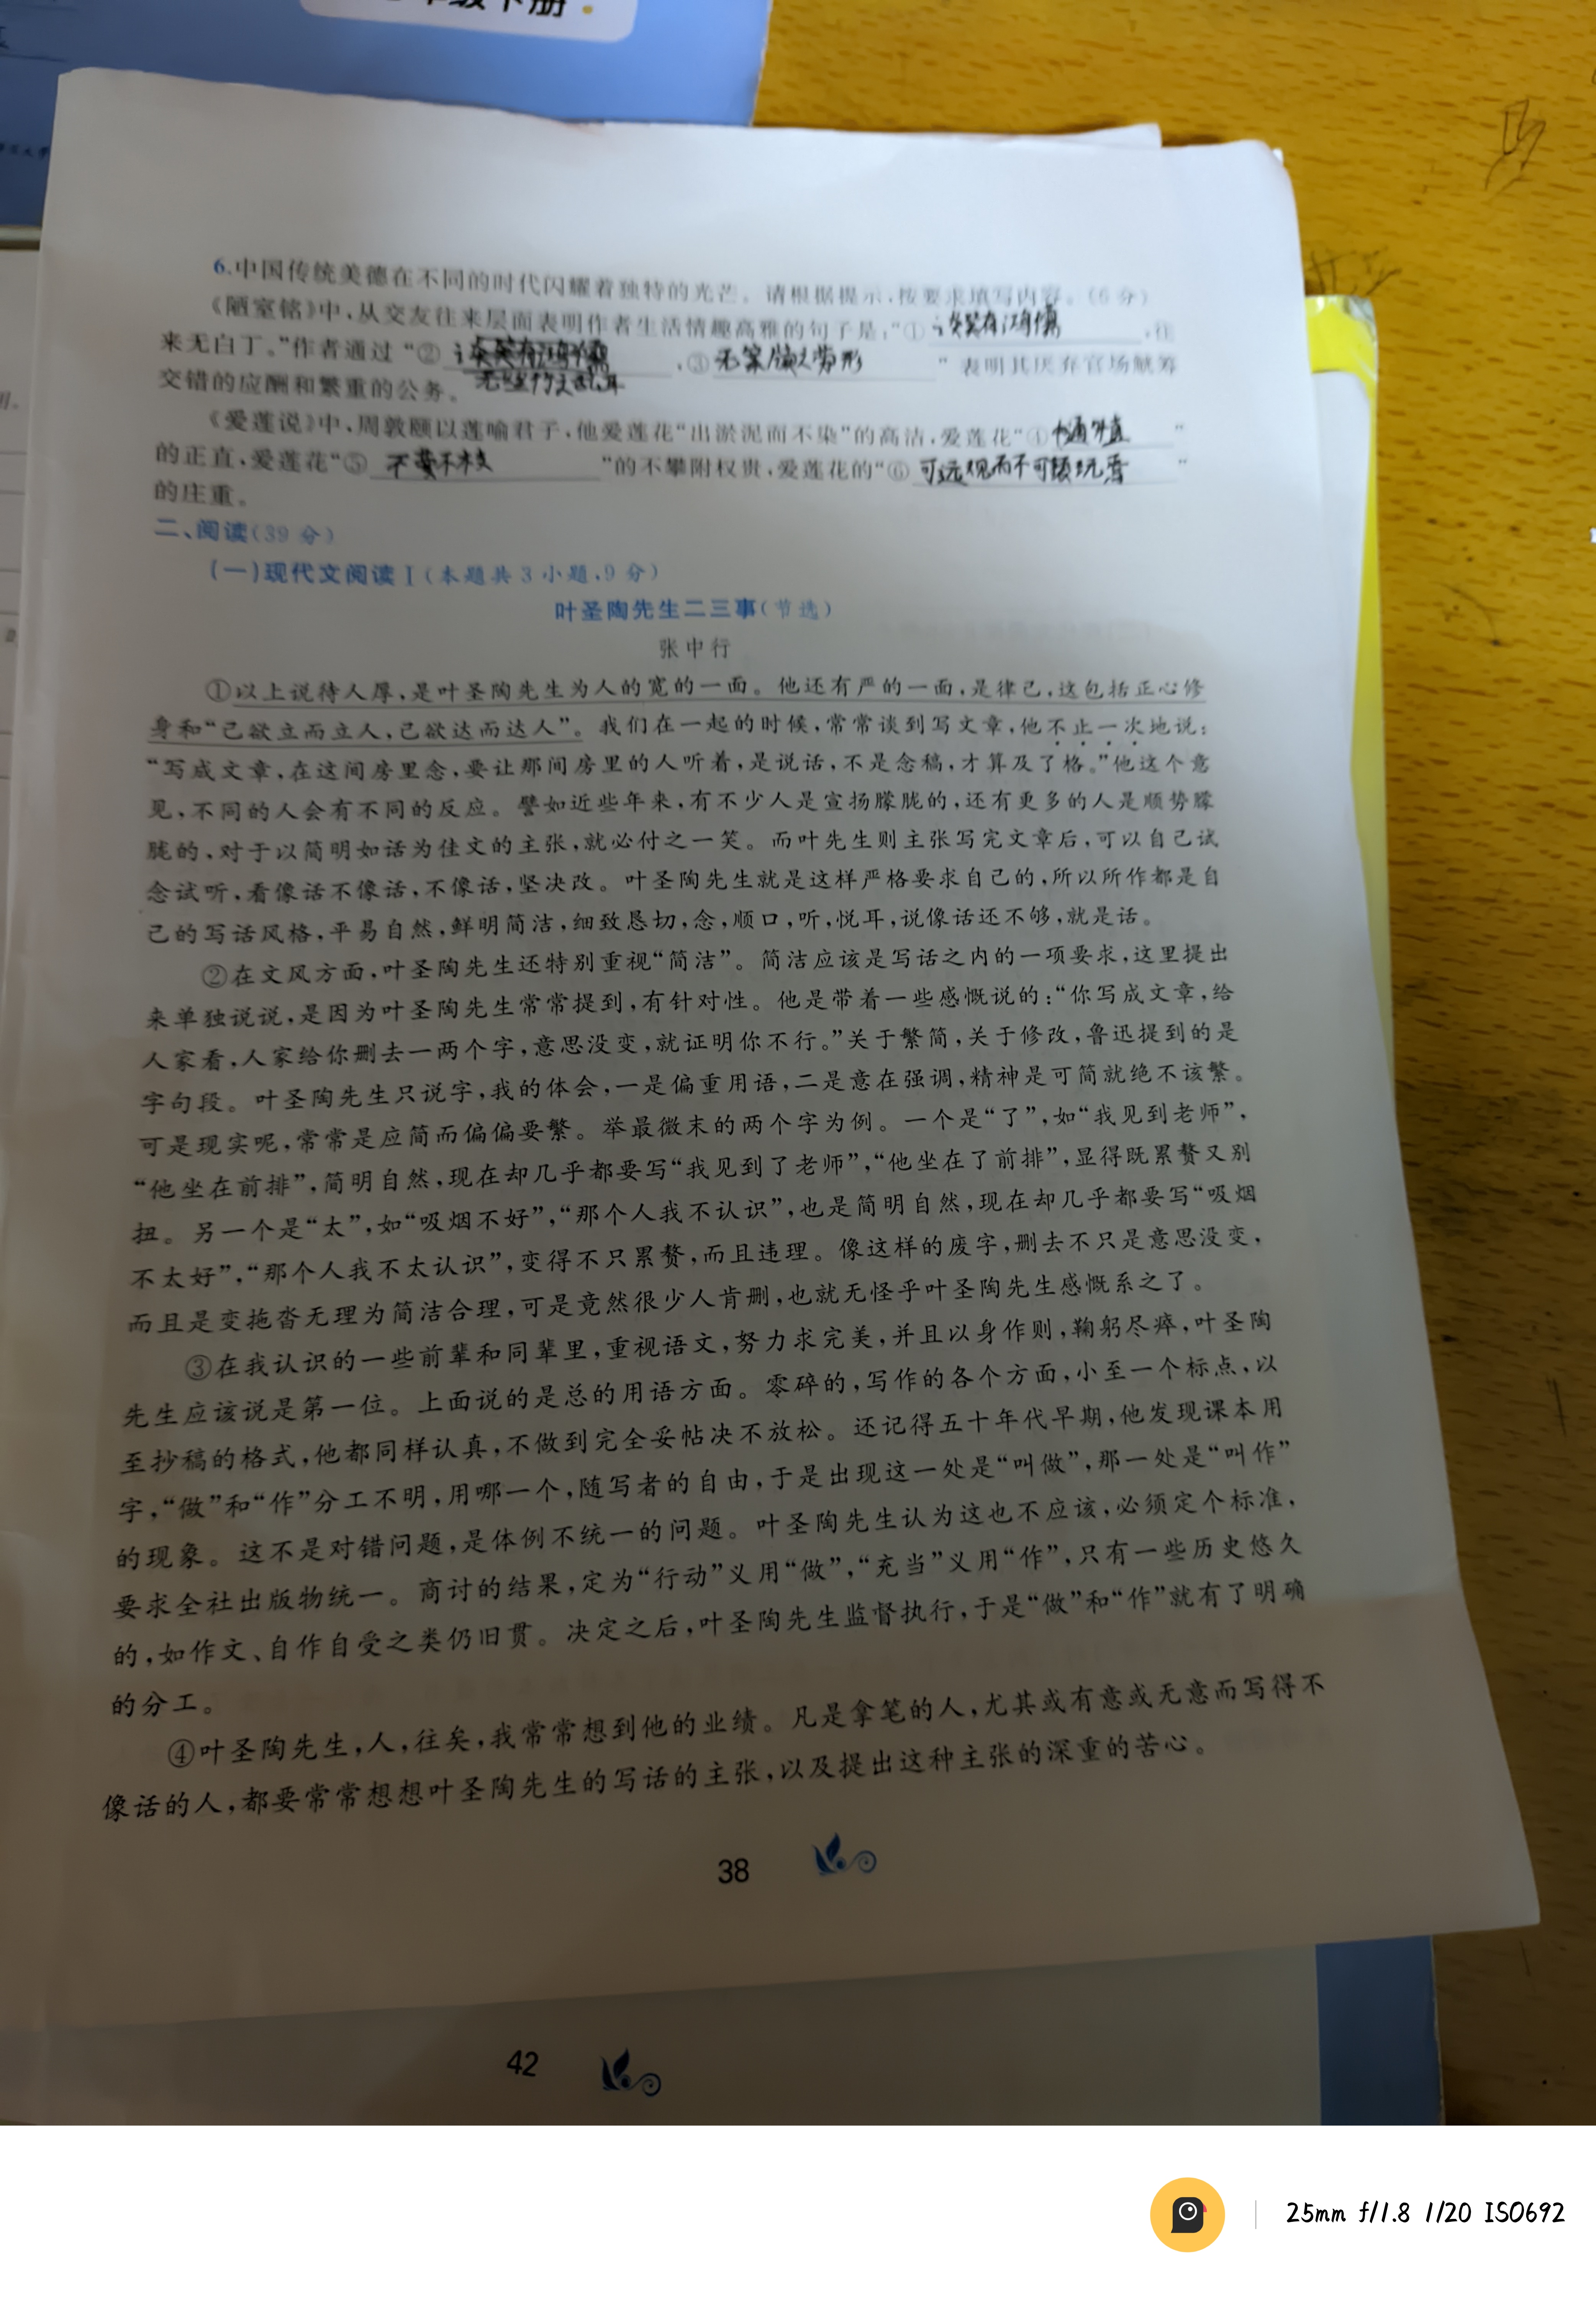 级下册
6.中国传统美德在不同的时代闪耀着独特的光芒。请根据提示,按要求填写内容。(6分)
《陋室铭》中,从交友往来层面表明作者生活情趣高雅的句子是:“① 谈笑有鸿儒 ,往
来无白丁。”作者通过“② 无丝竹之乱耳 ,③ 无案牍之劳形 ”表明其厌弃官场觥筹
交错的应酬和繁重的公务。
《爱莲说》中,周敦颐以莲喻君子,他爱莲花“出淤泥而不染”的高洁,爱莲花“④ 中通外直 ”
的正直,爱莲花“⑤ 不蔓不枝 ”的不攀附权贵,爱莲花的“⑥ 可远观而不可亵玩焉 ”
的庄重。
二、阅读(39分)
(一)现代文阅读Ⅰ(本题共3小题,9分)
叶圣陶先生二三事(节选)
张中行
①以上说待人厚,是叶圣陶先生为人的宽的一面。他还有严的一面,是律己,这包括正心修
身和“己欲立而立人,己欲达而达人”。我们在一起的时候,常常谈到写文章,他不止一次地说:
“写成文章,在这间房里念,要让那间房里的人听着,是说话,不是念稿,才算及了格。”他这个意
见,不同的人会有不同的反应。譬如近些年来,有不少人是宣扬朦胧的,还有更多的人是顺势朦
胧的、对于以简明如话为佳文的主张,就必付之一笑。而叶先生则主张写完文章后,可以自己试
念试听,看像话不像话,不像话,坚决改。叶圣陶先生就是这样严格要求自己的,所以所作都是自
己的写话风格,平易自然,鲜明简洁,细致恳切,念,顺口,听,悦耳,说像话还不够,就是话。
②在文风方面,叶圣陶先生还特别重视“简洁”。简洁应该是写话之内的一项要求,这里提出
来单独说说,是因为叶圣陶先生常常提到,有针对性。他是带着一些感慨说的:“你写成文章,给
人家看,人家给你删去一两个字,意思没变,就证明你不行。”关于繁简,关于修改,鲁迅提到的是
字句段。叶圣陶先生只说字,我的体会,一是偏重用语,二是意在强调,精神是可简就绝不该繁。
可是现实呢,常常是应简而偏偏要繁。举最微末的两个字为例。一个是“了”,如“我见到老师”,
“他坐在前排”,简明自然,现在却几乎都要写“我见到了老师”,“他坐在了前排”,显得既累赘又别
扭。另一个是“太”,如“吸烟不好”,“那个人我不认识”,也是简明自然,现在却几乎都要写“吸烟
不太好”,“那个人我不太认识”,变得不只累赘,而且违理。像这样的废字,删去不只是意思没变,
而且是变拖沓无理为简洁合理,可是竟然很少人肯删,也就无怪乎叶圣陶先生感慨系之了。
③在我认识的一些前辈和同辈里,重视语文,努力求完美,并且以身作则,鞠躬尽瘁,叶圣陶
先生应该说是第一位。上面说的是总的用语方面。零碎的,写作的各个方面,小至一个标点,以
至抄稿的格式,他都同样认真,不做到完全妥帖决不放松。还记得五十年代早期,他发现课本用
字,“做”和“作”分工不明,用哪一个,随写者的自由,于是出现这一处是“叫做”,那一处是“叫作”
的现象。这不是对错问题,是体例不统一的问题。叶圣陶先生认为这也不应该,必须定个标准,
要求全社出版物统一。商讨的结果,定为“行动”义用“做”,“充当”义用“作”,只有一些历史悠久
的,如作文、自作自受之类仍旧贯。决定之后,叶圣陶先生监督执行,于是“做”和“作”就有了明确
的分工。
④叶圣陶先生,人,往矣,我常常想到他的业绩。凡是拿笔的人,尤其或有意或无意而写得不
像话的人,都要常常想想叶圣陶先生的写话的主张,以及提出这种主张的深重的苦心。
38
42
25mm f/1.8 1/20 ISO692